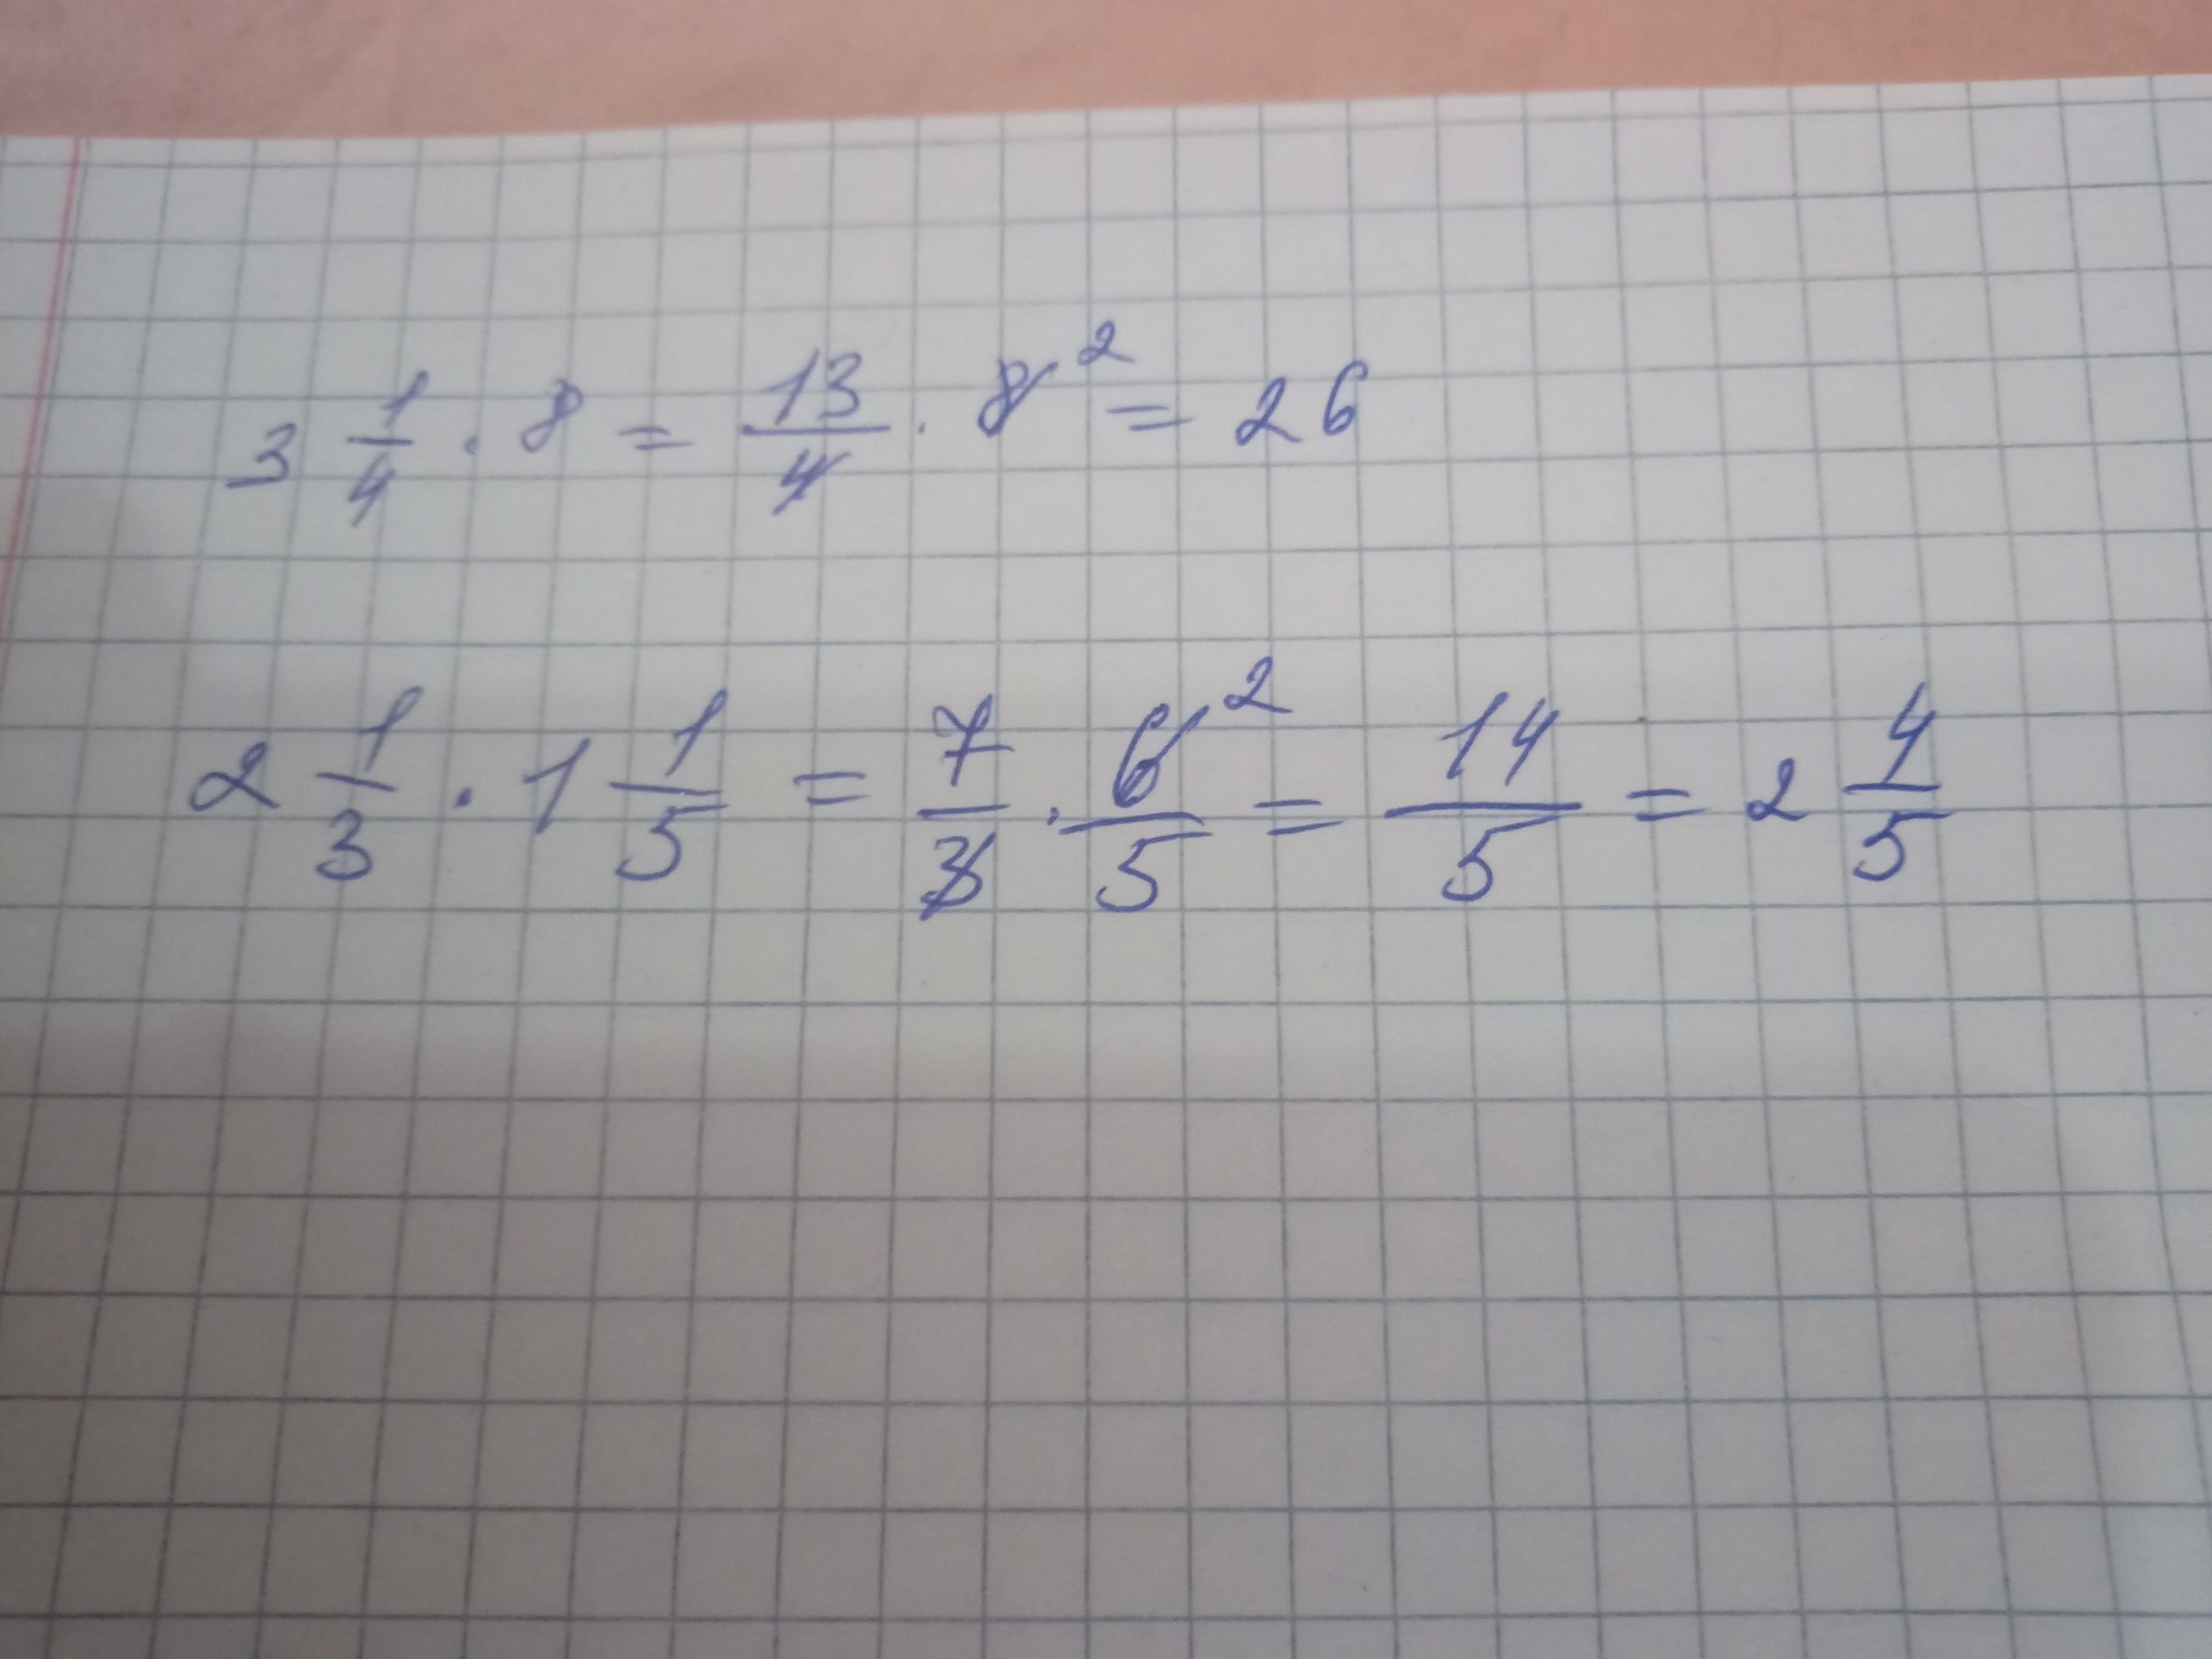 3 1/4 · 8 = 13/4 · 8 2 = 26
2 1/3 · 1 1/5 = 7/3 · 6 2/5 = 14/5 = 2 4/5